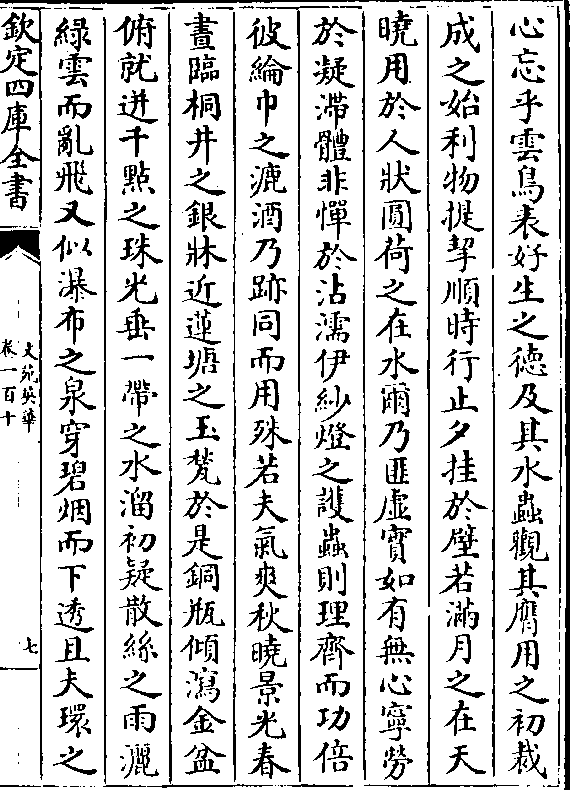 心忘乎雲鳥表好生之徳及其水蟲觀其膺用之初裁
成之始利物提挈順時行止夕挂於壁若滿月之在天
曉用於人狀圓荷之在水爾乃匪虛實如有無心寧勞
於凝滯體非憚於沾濡伊紗燈之護蟲則理齊而功倍
彼綸巾之漉酒乃跡同而用殊若夫氣爽秋曉景光春
晝臨桐井之銀牀近蓮塘之玉甃於是銅瓶傾瀉金盆
俯就迸千點之珠光垂一帶之水溜初疑散絲之雨灑
緑雲而亂飛又似瀑布之泉穿碧烟而下透且夫環之
欽定四庫全書
文苑英華
卷一百十
七